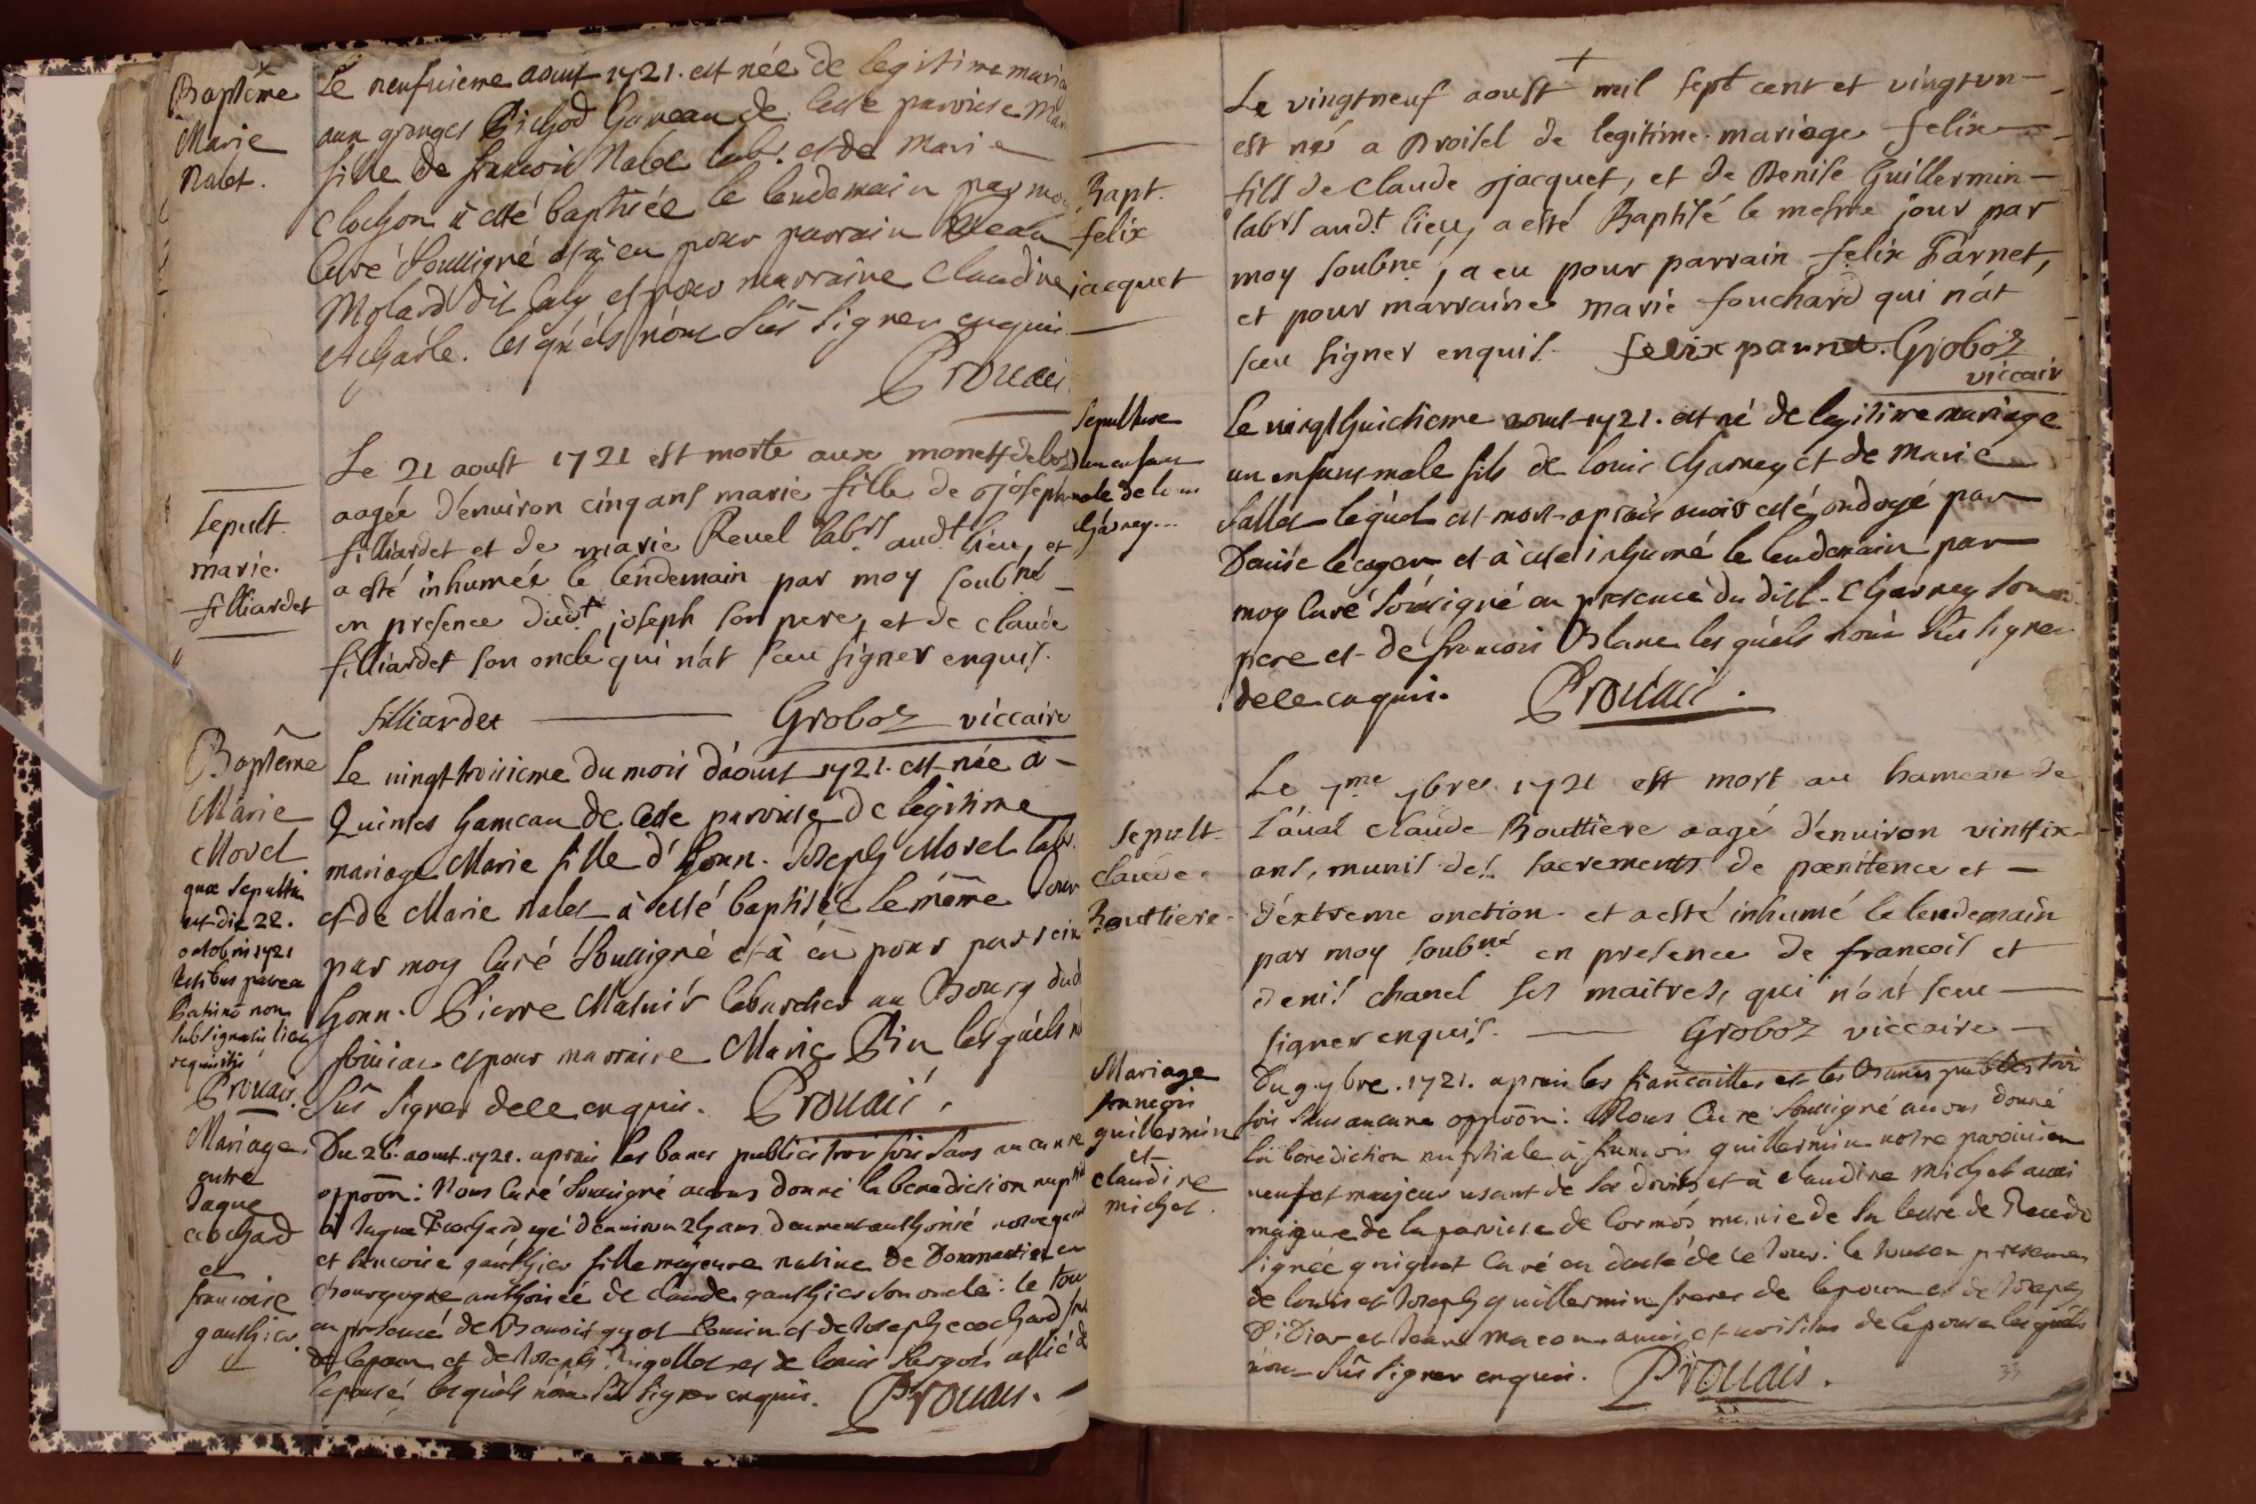 Baptême
Marie
Nalet.
Le neufuieme aoust 1721. est née de legitime maria
aux granges Pichod hameau de cette paroisse Mar
fille de francois Nalet labr. et de Marie
Clochon à esté baptisée le lendemain par moy
Curé soussigné et à eu pour parrain
Molard dit et pour marraine Claudine
lesquels n'ont sus signer enquis
Prouais
Sepult.
marie.
filliardet
Le 21 aoust 1721 est morte aux
aagée d'enuiron cinq ans marie fille de joseph
filliardet et de marie Reuel labrs audt lieu, et
a esté inhumée le lendemain par moy soubné
en presence dudt joseph son pere, et de claude
filliardet son oncle qui n'at sceu signer enquis.
filliardet Groboz viccaire
Baptême
Marie
Morel
quæ sepulta
est die 22.
octobris 1721
testibus patre et
Patrino non
subsignatis licet
requisitis
Prouais.
Le uingt troisieme du mois d'aoust 1721. est née a
Quintes hameau de cette paroisse de legitime
mariage Marie fille d'honn. Joseph Morel labr.
et de Marie nalet à esté baptisée le même Jour
par moy Curé soussigné et à eu pour parrein
honn. Pierre Mathis au Bourg dud
et pour marraine Marie Pin lesquels n
sus signer de ce enquis. Prouais.
Mariage
entre
Jaque
ecochard
et
francoise
gauthier.
Du 26. aoust. 1721. aprais les bancs publiés trois fois sans aucunne
oppoõn: Nous Curé soussigné auons donné la benediction nupti
à Jaque Ecochard agé d'enuiron 24 ans deument authorisé
et francoise gauthier fille majeure natiue de Dommartin en
Bourgogne authorisée de claude gauthier son oncle: le tout
en presence de Benoit guot cousin et de Joseph ecochard
de lepoux et de Joseph et de louis allié de
lepouse lesquels n'ont sus signer enquis. Prouais.
Bapt.
felix
jacquet
Le vingtneuf aoust mil sept cent et vingtvn
est né a Broisel de legitime mariage felix
fils de claude jacquet, et de Denise Guillermin
labrs audt lieu, a esté Baptisé le mesme jour par
moy soubné, a eu pour parrain felix Parnet,
et pour marraine marie fouchard qui n'at
sceu signer enquis. felix parnet. Groboz
viccair
Sepulture
d'un enfant
male de louis
Charney
Le uingt huictieme aoust 1721. est né de legitime mariage
un enfant male fils de louis Charney et de Marie
Sallet lequel est mort aprais auoir esté ondoyé par
Denise et à esté inhumé le lendemain par
moy Curé soussigné en presence du dist. Charney son
pere et de francois Blanc lesquels n'ont sus signer
de ce enquis. Prouais.
Sepult.
claude
Bouttiere.
Le 7me 7bre 1721 est mort au hameau de
Laual claude Bouttiere aagé d'enuiron vintsix
ans, munis des sacrements de pœnitence et
d'extreme onction. et a esté inhumé le lendemain
par moy soubné en presence de francois et
denis chanel ses maitres, qui n'ont sceu
signer enquis. Groboz viccaire
Mariage
francois
guillermin
et
claudine
michel.
Du 9. 7bre. 1721. aprais les fiancailles et les Bancs publiés trois
fois sans aucune oppoõn: Nous Curé soussigné auons donné
la benediction nuptiale à francois guillermin notre paroissien
ueuf et majeur usant de ses droits et à claudine michel aussi
majeure de la paroisse de Cormos munie de la lettre de Recede
signée guignet Curé en datte de ce Jour: le tout en presence
de louis et Joseph guillermin freres de lepoux et de Joseph
Didier et Jean macon amis et uoisins de lepouse lesquels
n'ont sus signer enquis. Prouais.